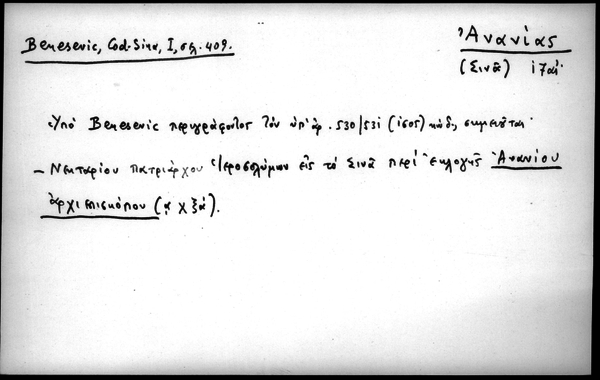 Benesevic, Cod. Sina, I, σελ. 409.
Ἀνανίας
(Σινᾶ) ιζαί
Ὑπό Benesevic περιγράφοντος τὸν ὑπ' ἀρ. 530/531 (1505) κώδ, σημειοῦται
– Νεκταρίου πατριάρχου Ἱεροσολύμων εἰς τὸ Σινᾶ περί ἐκλογῆς Ἀνανίου
ἀρχιεπισκόπου (αχξά).